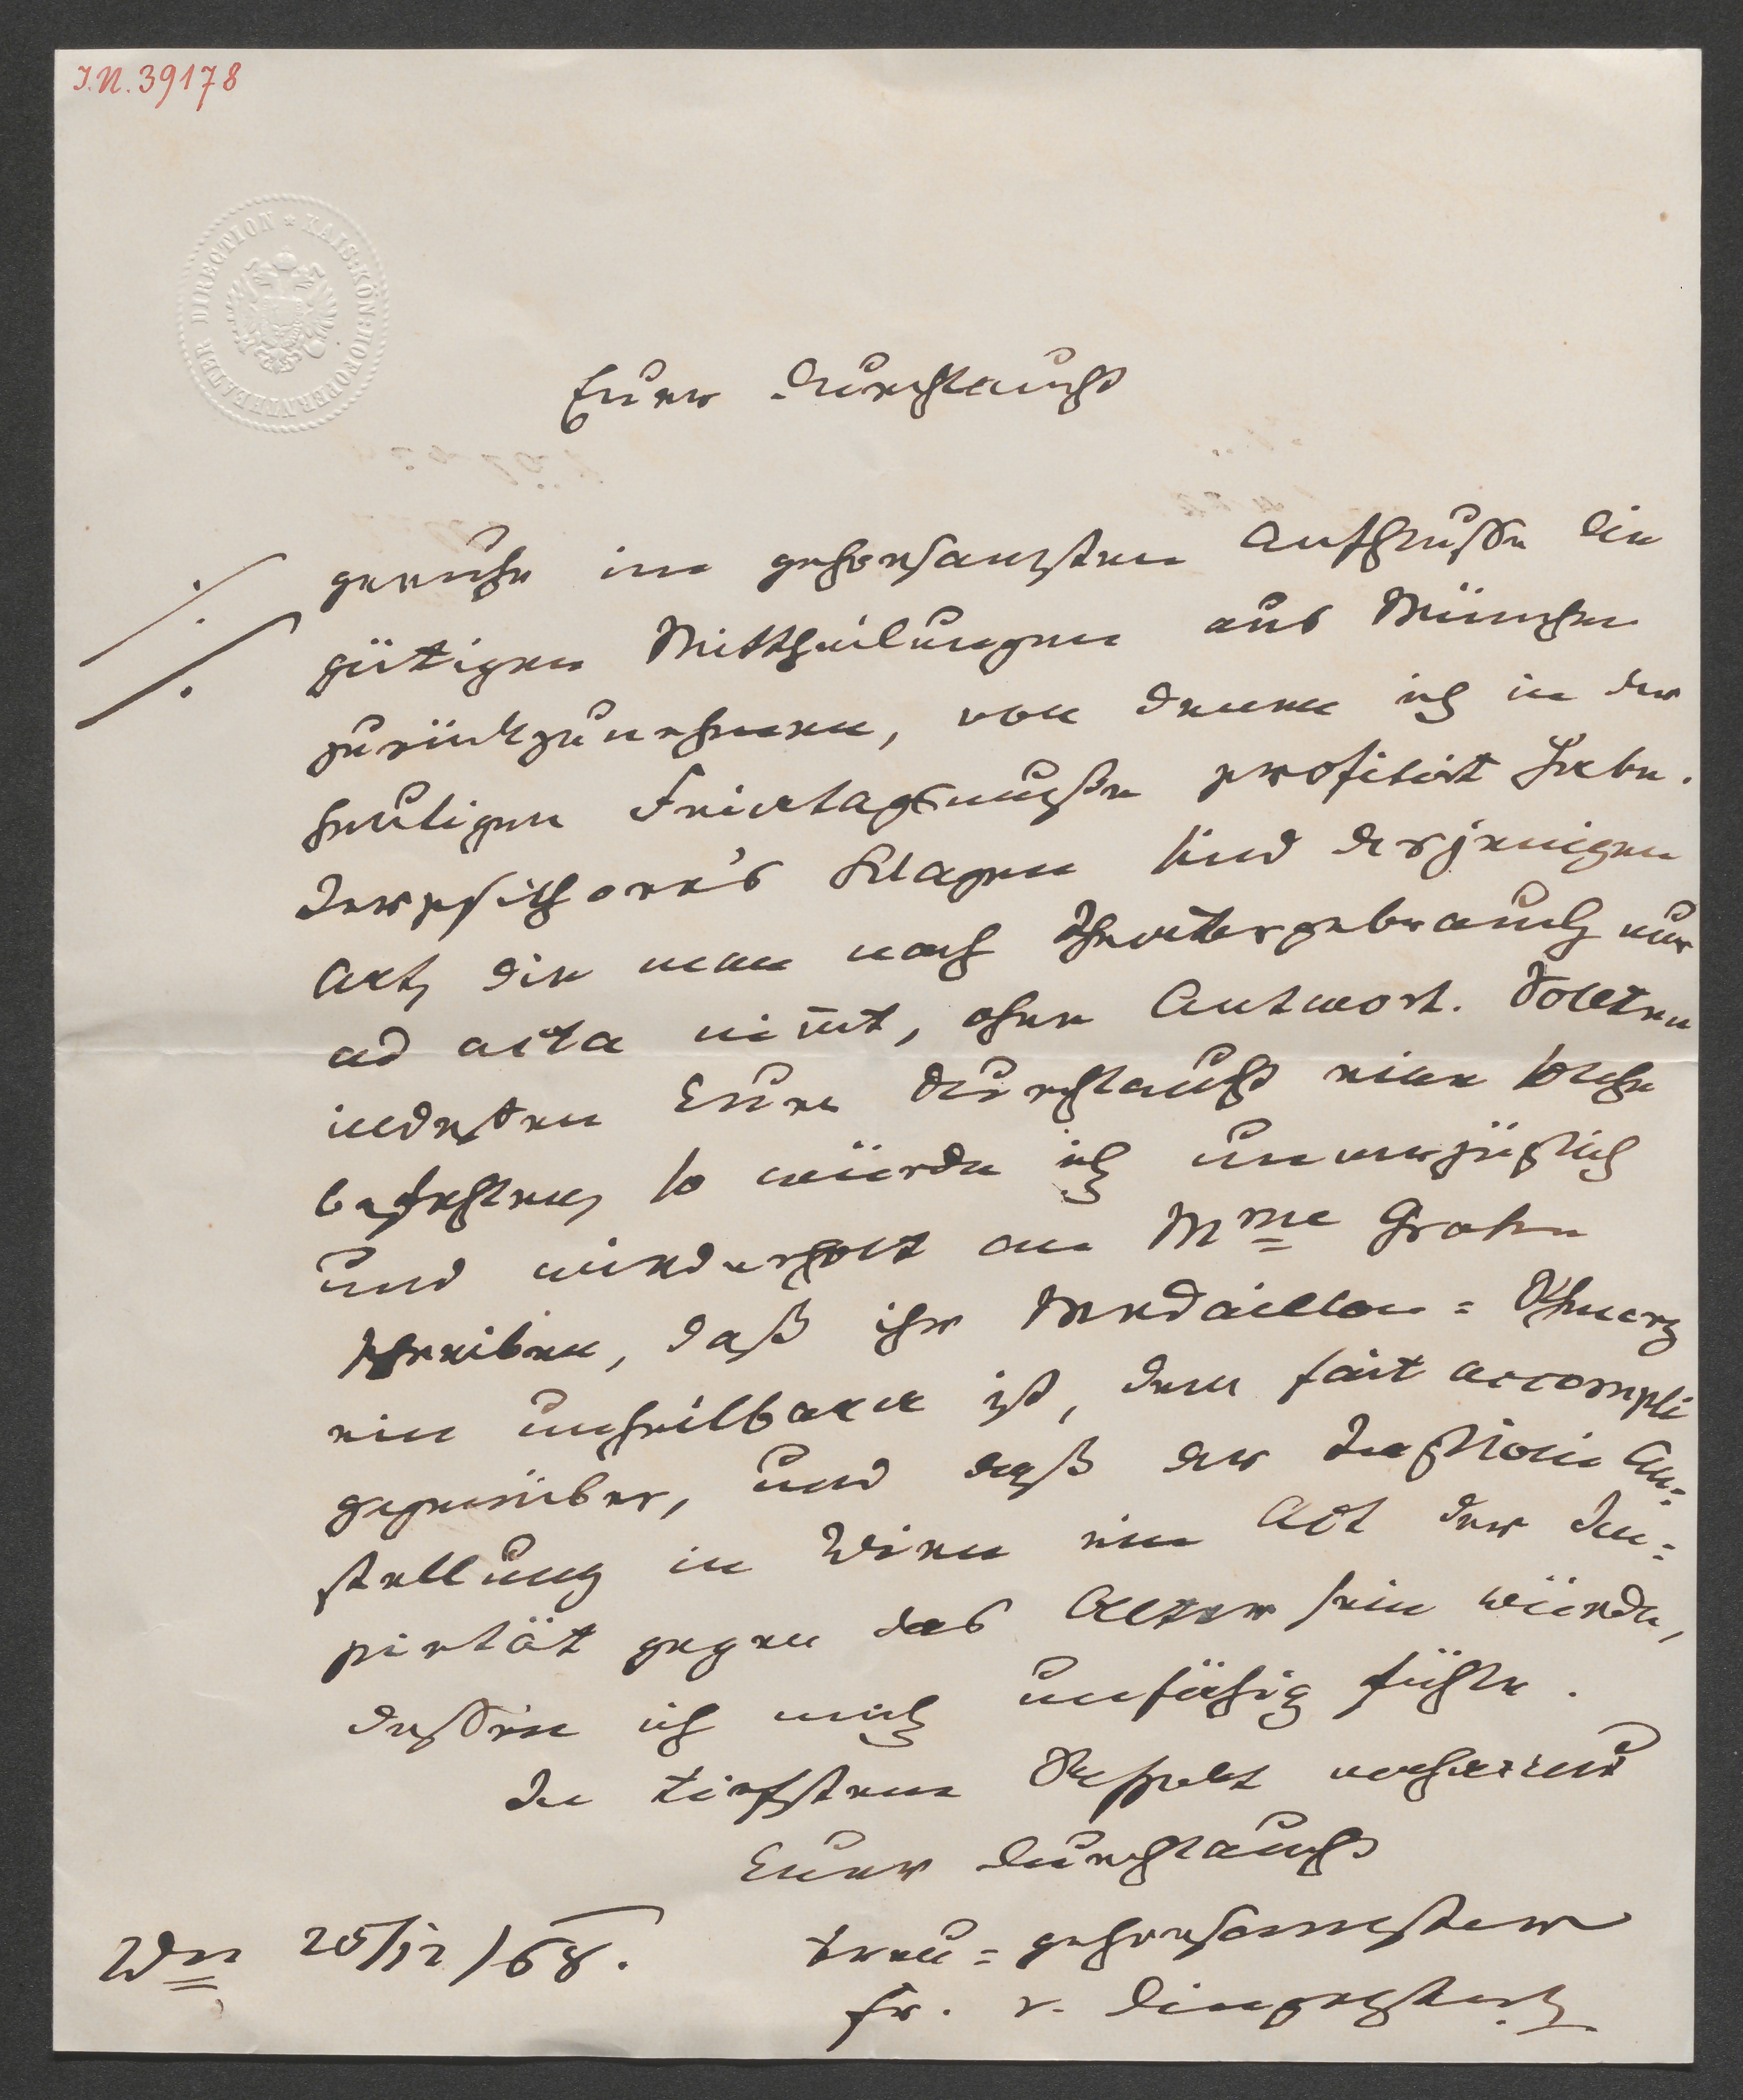 I.N. 39178
KAIS: KÖN: HOFOPERNTHEATER DIRECTION
Eurer Durchlaucht
geruhe im gehorsamsten Anschlusse die
gütigen Mittheilungen aus München
zurückzunehmen, von denen ich in der
heutigen Feiertagsmuße profitirt habe.
Terpsichore's Klagen sind derjenigen
Art, die man nach Theatergebrauch nur
ad acta nim̅t, ohne Antwort. Sollten
indessen Eure Durchlaucht eine solche
befehlen, so würde ich unverzüglich
und wiederholt an Mme Grahn
schreiben, daß ihr Medaillon-Schmerz
ein unheilbarer ist, dem fait accompli
gegenüber, und daß der An-
stellung in Wien ein Act der Im-
pietät gegen das Alter sein würde,
dessen ich mich unfähig fühle.
In tiefstem Respekt verharrend
Eurer Durchlaucht
treu-gehorsamster
Wn 25/12/68.
Fr. v. Dingelstedt